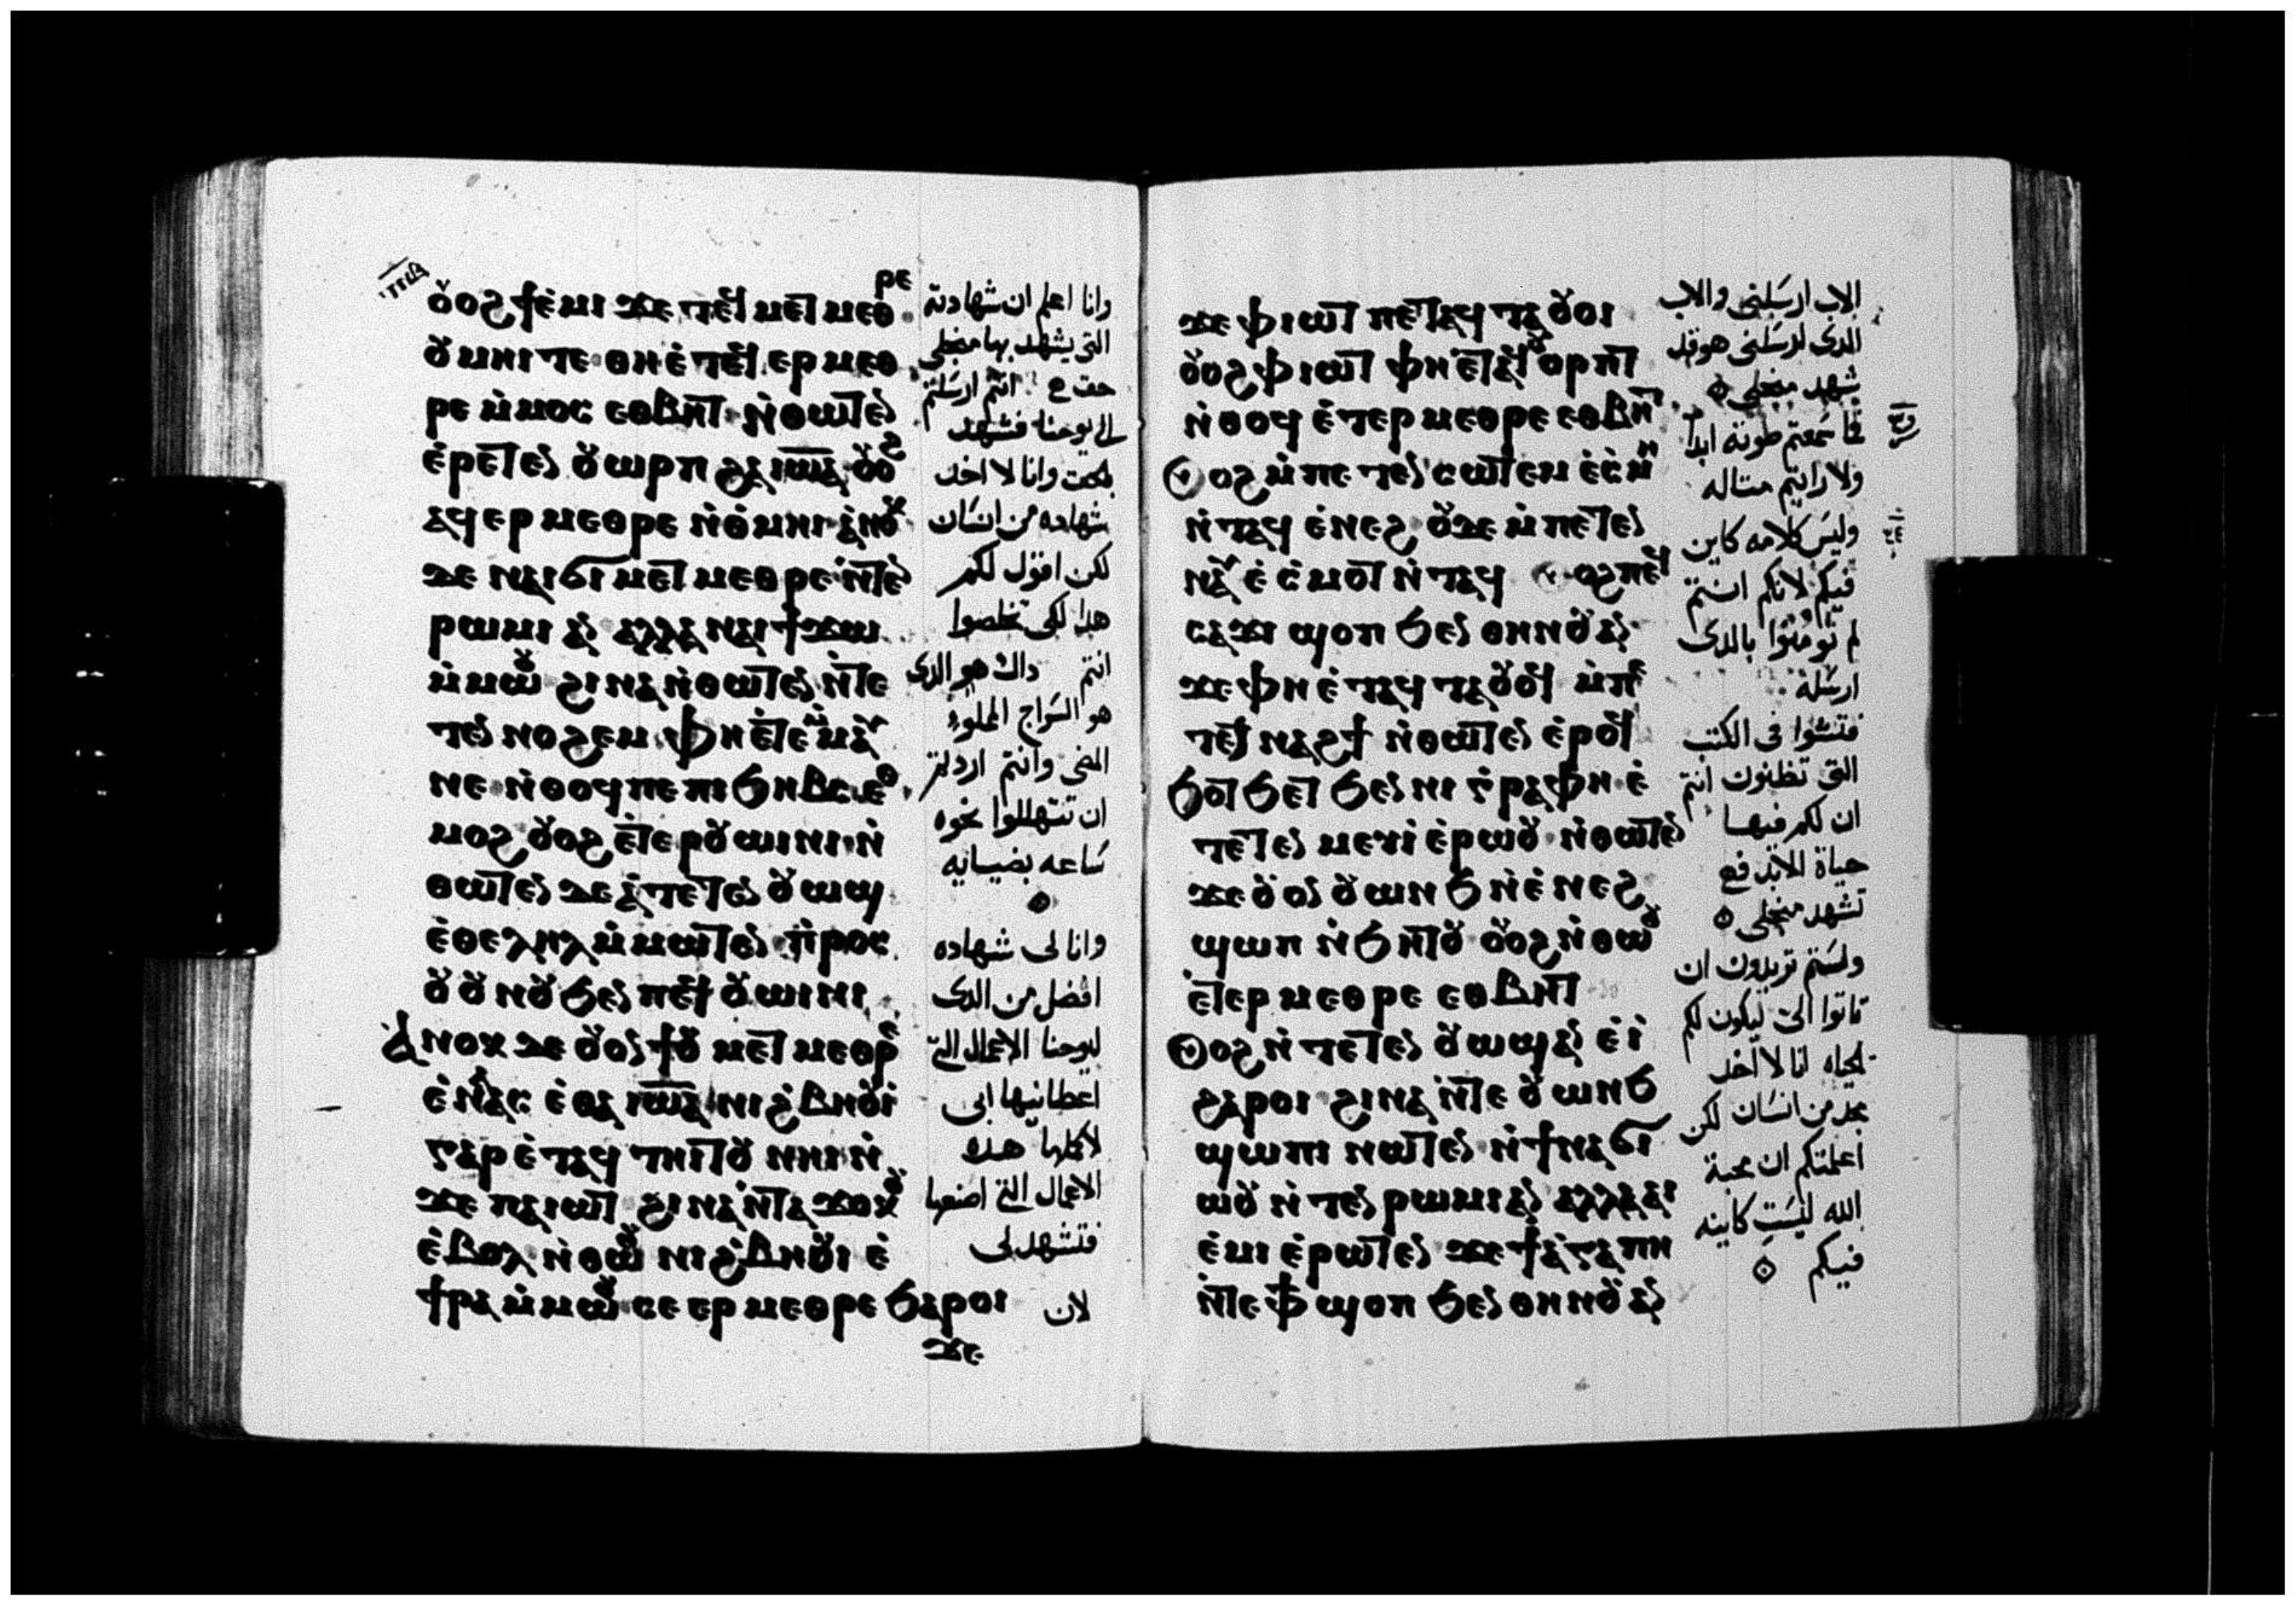 ⲟⲩⲟϩ ϯⲉ̀ⲙⲓ ϫⲉ ⲧⲉϥ ⲙⲉⲧ ⲙⲉⲑⲣⲉ
ⲟⲩⲙⲏⲓ ⲧⲉ ⲑⲏ ⲉ̀ⲧⲉϥ ⲉⲣ ⲙⲉⲑ
ⲣⲉ ⲙ̀ⲙⲟⲥ ⲉⲑⲃⲏⲧ ⲛ̀ⲑⲱⲧⲉⲛ
ⲉ̀ⲣⲉⲧⲉⲛ ⲟⲩⲱⲣⲡ ϩⲁ ⲓⲱⲁ ⲟⲩⲟϩ
ⲁϥ ⲉⲣ ⲙⲉⲑⲣⲉ ⲛ̀ⲑ̀ⲙⲏⲓ ⲁ̀ⲛⲟⲕ
ϫⲉ ⲛⲁⲓϭⲓ ⲙⲉⲧ ⲙⲉⲑⲣⲉ ⲛ̀ⲧⲉⲛ
ⲣⲱⲙⲓ ⲁⲛ ⲁⲗⲗⲁ ⲛⲁⲓ ϯϫⲱ
ⲙ̀ⲙⲱⲟⲩ ϩⲓⲛⲁ ⲛ̀ⲑⲱⲧⲉⲛ ⲛ̀ⲧⲉ
ⲧⲉⲛ ⲛⲟϩⲉⲙ ⲫⲏ ⲉ̀ⲧⲉⲙ̀ⲙⲁⲩ
ⲛⲉ ⲛ̀ⲑⲟϥ ⲡⲉ ⲡⲓϧⲏⲃⲥ ⲉⲑ
ⲙⲟϩ ⲟⲩⲟϩ ⲉ̀ⲧⲉⲣⲟⲩⲱⲓⲛⲓ ⲛ̀
ⲑⲱⲧⲉⲛ ϫⲉ ⲁ̀ⲧⲉⲧⲉⲛ ⲟⲩⲱϣ
ⲉ̀ⲑⲉⲗⲏⲗ ⲙ̀ⲙⲱⲧⲉⲛ ⲡ̀ⲣⲟⲥ
ⲟⲩⲟⲩⲛⲟⲩ ϧⲉⲛ ⲡⲉϥ ⲟⲩⲱⲓⲛⲓ
ⲁ̀ⲛⲟⲕ ϫⲉ ⲟⲩⲟⲛϯⲟⲩ ⲙⲉⲧ ⲙⲉⲑⲣⲉ
ⲉ̀ⲛⲁⲁⲥ ⲉ̀ⲑⲁ ⲓⲱⲁ ⲛⲓϩ̀ⲃⲏⲟⲩⲓ̀
ⲅⲁⲣ ⲉ̀ⲧⲁϥ ⲧⲏⲓⲧⲟⲩ ⲛⲏⲓ ⲛ̀
ϫⲉ ⲡⲁⲓⲱⲧ ϩⲓⲛⲁ ⲛ̀ⲧⲁϫⲟⲕⲟⲩ
ⲉ̀ⲃⲟⲗ ⲛ̀ⲑⲱⲟⲩ ⲛⲓϩ̀ⲃⲏⲟⲩⲓ ⲉ̀
ϯⲣⲁ ⲙ̀ⲙⲱⲟⲩ ⲥⲉ ⲉⲣ ⲙⲉⲑⲣⲉ ϧⲁⲣⲟⲓ
ϫⲉ
وانا اعلم ان شهادته
التى يشهد بها منجلى
حق ع انتم ارسلتم
الى يوحنا فشهد
بلحق وانا لا اخد
شهاده من انسان
لكن اقول لكم
هدا لكى تخلصوا
انتم داك هو الدى
هو السراج المملوء
المضى وانتم اردتم
ان تتهللوا نحوه
ساعه بضيايه
وانا لى شهاده
افضل من الدى
ليوحنا الاعمال التى
اعطانيها ابى
لاكملها هده
الاعمال التى اصنعها
فتشهد لى
لان
ϫⲉ ⲫⲓⲱⲧ ⲡⲉⲧⲁϥ ⲧⲁⲟⲩⲟⲓ
ⲟⲩⲟϩ ⲫⲓⲱⲧ ⲫⲏ ⲉ̀ⲧⲁϥⲟⲩⲟⲣⲡⲧ
ⲛ̀ⲑⲟϥ ⲉ̀ⲧⲉⲣ ⲙⲉⲑⲣⲉ ⲉⲑⲃⲏⲧ
ⲟⲩⲟϩ ⲙ̀ⲡⲉ ⲧⲉⲛ ⲥⲱⲧⲉⲙ ⲉ̀ⲥ̀ⲙⲏ
ⲛ̀ⲧⲁϥ ⲉ̀ⲛⲉϩ ⲟⲩϫⲉ ⲙ̀ⲡⲉⲧⲉⲛ
ⲛⲁⲩ ⲉ̀ ⲥ̀ⲙⲟⲧ ⲛ̀ⲧⲁϥ ⲟⲩⲟϩ ⲡⲉϥ
ⲥⲁϫⲓ ϣⲟⲡ ϧⲉⲛ ⲑⲏⲛⲟⲩ ⲁⲛ
ϫⲉ ⲫⲏ ⲉ̀ⲧⲁϥ ⲧⲁⲟⲩⲟϥ ⲙ̀ⲡⲉ
ⲧⲉⲛ ⲛⲁϩϯ ⲛ̀ⲑⲱⲧⲉⲛ ⲉ̀ⲣⲟϥ
ϧⲟⲧϧⲉⲧ ϧⲉⲛ ⲛⲓ ⲅ̀ⲣⲁⲫⲏ ⲉ̀
ⲧⲉⲧⲉⲛ ⲙⲉⲩⲓ̀ ⲉ̀ⲣⲱⲟⲩ ⲛ̀ⲑⲱⲧⲉⲛ
ϫⲉ ⲟⲩⲟⲛ ⲟⲩⲱⲛϧ ⲛ̀ⲉ̀ⲛⲉϩ
ϣⲱⲡ ⲛ̀ϧⲏⲧⲟⲩ ⲟⲩⲟϩ ⲛ̀ⲑⲱⲟⲩ
ⲉ̀ⲧⲉⲣ ⲙⲉⲑⲣⲉ ⲉⲑⲃⲏⲧ
ⲟⲩⲟϩ ⲛ̀ ⲧⲉⲧⲉⲛ ⲟⲩⲱϣ ⲁⲛ ⲉ̀ⲓ̀
ϩⲁⲣⲟⲓ ϩⲓⲛⲁ ⲛ̀ⲧⲉ ⲟⲩⲱⲛϧ
ϣⲱⲡⲓ ⲛⲱⲧⲉⲛ ⲛ̀ϯⲛⲁϭⲓ
ⲱⲟⲩ ⲛ̀ⲧⲉⲛ ⲣⲱⲙⲓ ⲁⲛ ⲁⲗⲗⲁ ⲁⲓ
ⲉ̀ⲙⲓ ⲉ̀ⲣⲱⲧⲉⲛ ϫⲉ ϯⲁ̀ⲅⲁⲡⲏ
ⲛ̀ⲧⲉ ⲫϯ ϣⲟⲡ ϧⲉⲛ ⲑⲏⲛⲟⲩ ⲁⲛ
الاب ارسلنى والاب
الدى ارسلنى هو قد
شهد منجلى
فما سمعتم صوته ابدا
ولا رايتم مثاله
وليس كلامه كاين
فيكم لانكم انتم
لم تومنوا بالدى
ارسله
فتشوا فى الكتب
التى تظنون انتم
ان لكم فيها
حياة الابد فهى
تشهد منجلى
ولستم تريدون ان
تاتوا الىّ ليكون لكم
الحياه انا لا اخد
مجد من انسان لكن
اعلمتكم ان محبة
الله ليست كاينه
فيكم